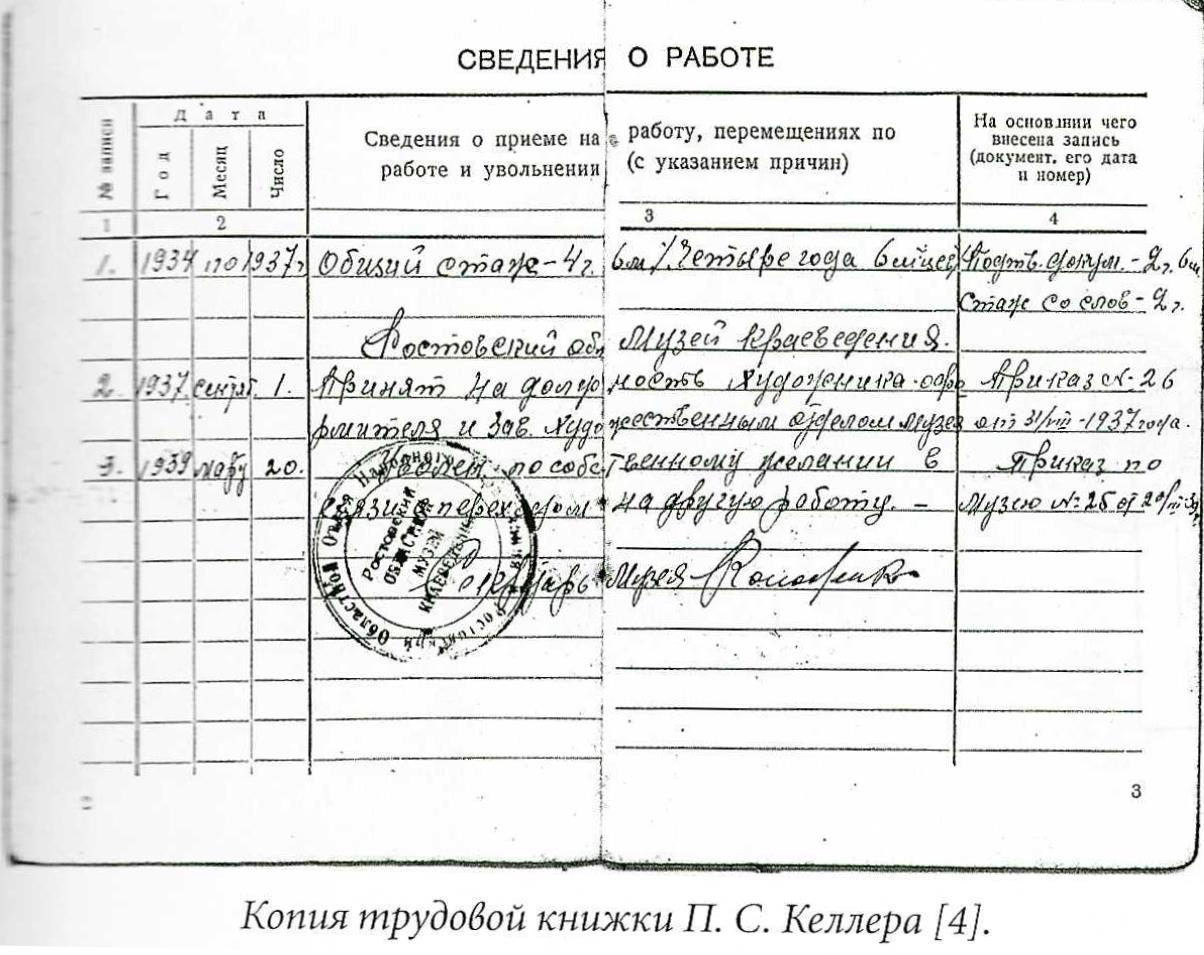 СВЕДЕНИЯ О РАБОТЕ
№ записи
Дата
Год
Месяц
Число
Сведения о приеме на работу, перемещениях по
работе и увольнении (с указанием причин)
На основании чего
внесена запись
(документ, его дата
и номер)
1 2 3 4
1. 1934 по 1937г Общий стаж - 4г. 6м /Четыре года 6 мицев/ Подтв. докум. - 2г. 6м
Стаж со слов - 2г.
Ростовский обл Музей краеведения.
2. 1937 сентяб. 1. Принят на должность художника-офо Приказ № 26
рмителя и Зав. Художественным отделом музея от 31/VIII-1937 года.
3. 1939 март 20. Уволен по собственному желании в Приказ по
связи с переходом на другую работу. - Музею № 25 от 20/III
Секретарь Музея
Ростовский
ОБЛАСТНОЙ
МУЗЕЙ
КРАЕВЕДЕНИЯ
3
Копия трудовой книжки П. С. Келлера [4].